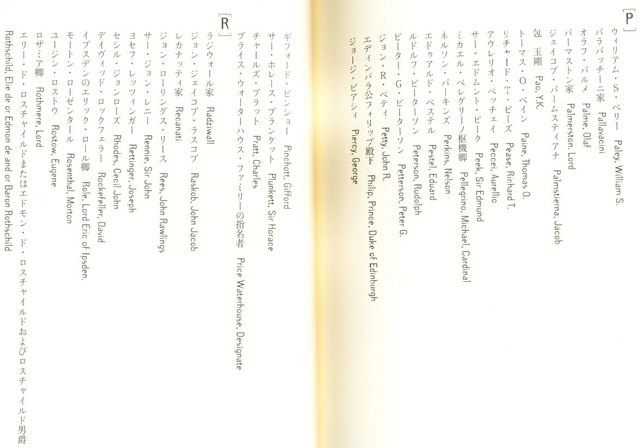 [P]
ウィリアム・S・ペリー Paley, William S.
パラバッチーニ家 Pallavacini
オラフ・パルメ Palme, Olaf
パーマストン家 Palmerston, Lord
ジェイコブ・パームスティアナ Palmstierna, Jacob
包 玉剛 Pao, Y.K.
トーマス・O・ペイン Paine, Thomas O.
リチャード・T・ピーズ Pease, Richard T.
アウレリオ・ペッチェイ Peccei, Aurellio
サー・エドムント・ピーク Peek, Sir Edmund
ミカエル・ペレグリーノ枢機卿 Pellegrino, Michael, Cardinal
ネルソン・パーキンズ Perkins, Nelson
エドゥアルド・ペステル Pestel, Eduard
ルドルフ・ピーターソン Peterson, Rudolph
ピーター・G・ピーターソン Petterson, Peter G.
ジョン・R・ペティ Petty, John R.
エディンバラ公フィリップ殿下 Philip, Prince, Duke of Edinburgh
ジョージ・ピアシィ Piercy, George
ギフォード・ピンショー Pinchott, Gifford
サー・ホレース・プランケット Plunkett, Sir Horace
チャールズ・プラット Pratt, Charles
プライス・ウォーターハウス・ファミリーの指名者 Price Waterhouse, Designate
[R]
ラジウォール家 Radziwall
ジョン・ジェイコブ・ラスコブ Raskob, John Jacob
レカナッティ家 Recanati
ジョン・ローリングス・リース Rees, John Rawlings
サー・ジョン・レニー Rennie, Sir John
ヨセフ・レッツィンガー Rettinger, Joseph
セシル・ジョン・ローズ Rhodes, Cecil John
デイヴィッド・ロックフェラー Rockefeller, David
イプスデンのエリック・ロール卿 Role, Lord Eric of Ipsden.
モートン・ローゼンタール Rosenthal, Morton
ユージン・ロストウ Rostow, Eugene
ロザミア卿 Rothmere, Lord
エリー・ド・ロスチャイルドまたはエドモン・ド・ロスチャイルドおよびロスチャイルド男爵
Rothschild, Elie de or Edmon de and or Baron Rothschild